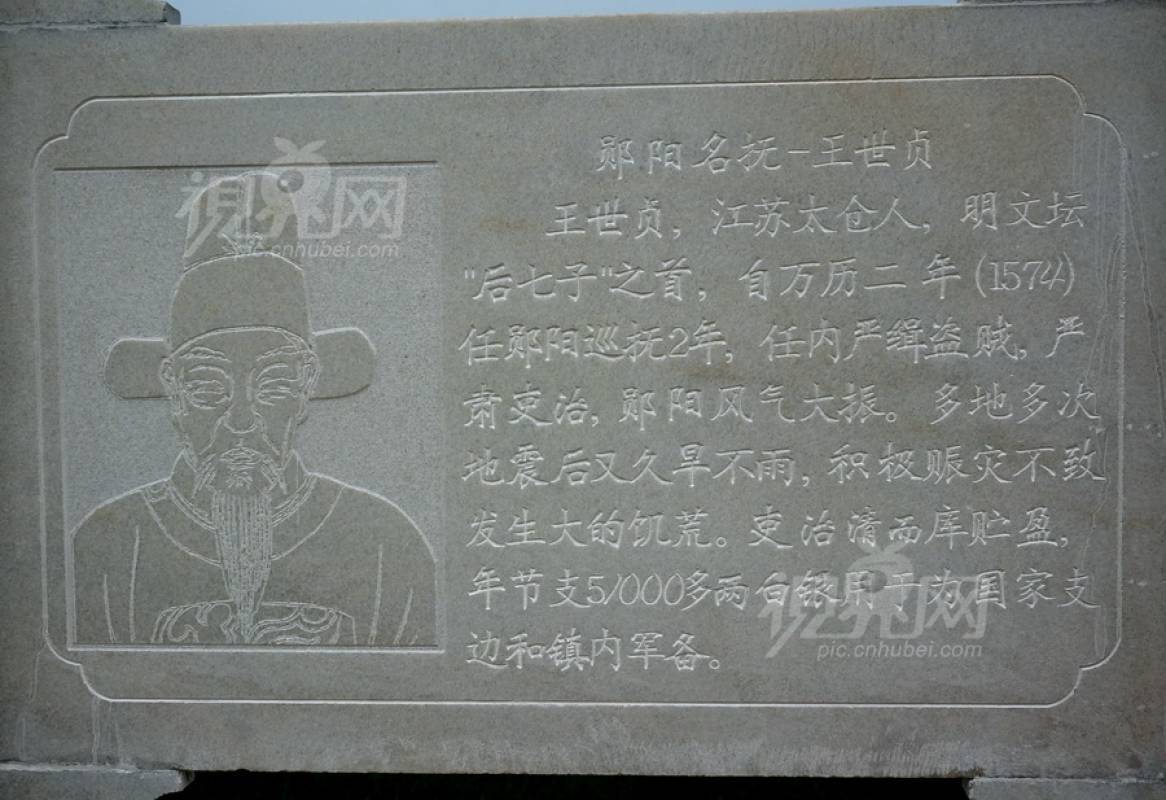 郧阳名抚-王世贞
王世贞，江苏太仓人，明文坛
"后七子"之首，自万历二年(1574)
任郧阳巡抚2年，任内严缉盗贼，严
肃吏治，郧阳风气大振。多地多次
地震后又久旱不雨，积极赈灾不致
发生大的饥荒。吏治清而库贮盈，
年节支51000多两白银用于为国家支
边和镇内军备。
視界网
pic.cnhubei.com
視界网
pic.cnhubei.com